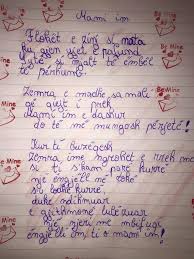 Mami im
Flokët e zinj si nata
ku gjen qiell e pafund
sytë si mjalt të ëmbël
të përhumb.
Zemra e madhe sa mali
që qust i prek
Mami im e dashur
do të më mungosh përjetë!
Kur ti buzëqesh
Zemra ime ngrohet e rreh më
si ti s'kam parë kurrë
një engjëll në tokë
si dukë kurrë
duke ndihmuar
e gjithmonë lubëzuar
një njeri me mbifuqi
engjëlli em, ti o mami im!
Be Mine
Be Mine
Be Mine
Be Mine
Be Mine